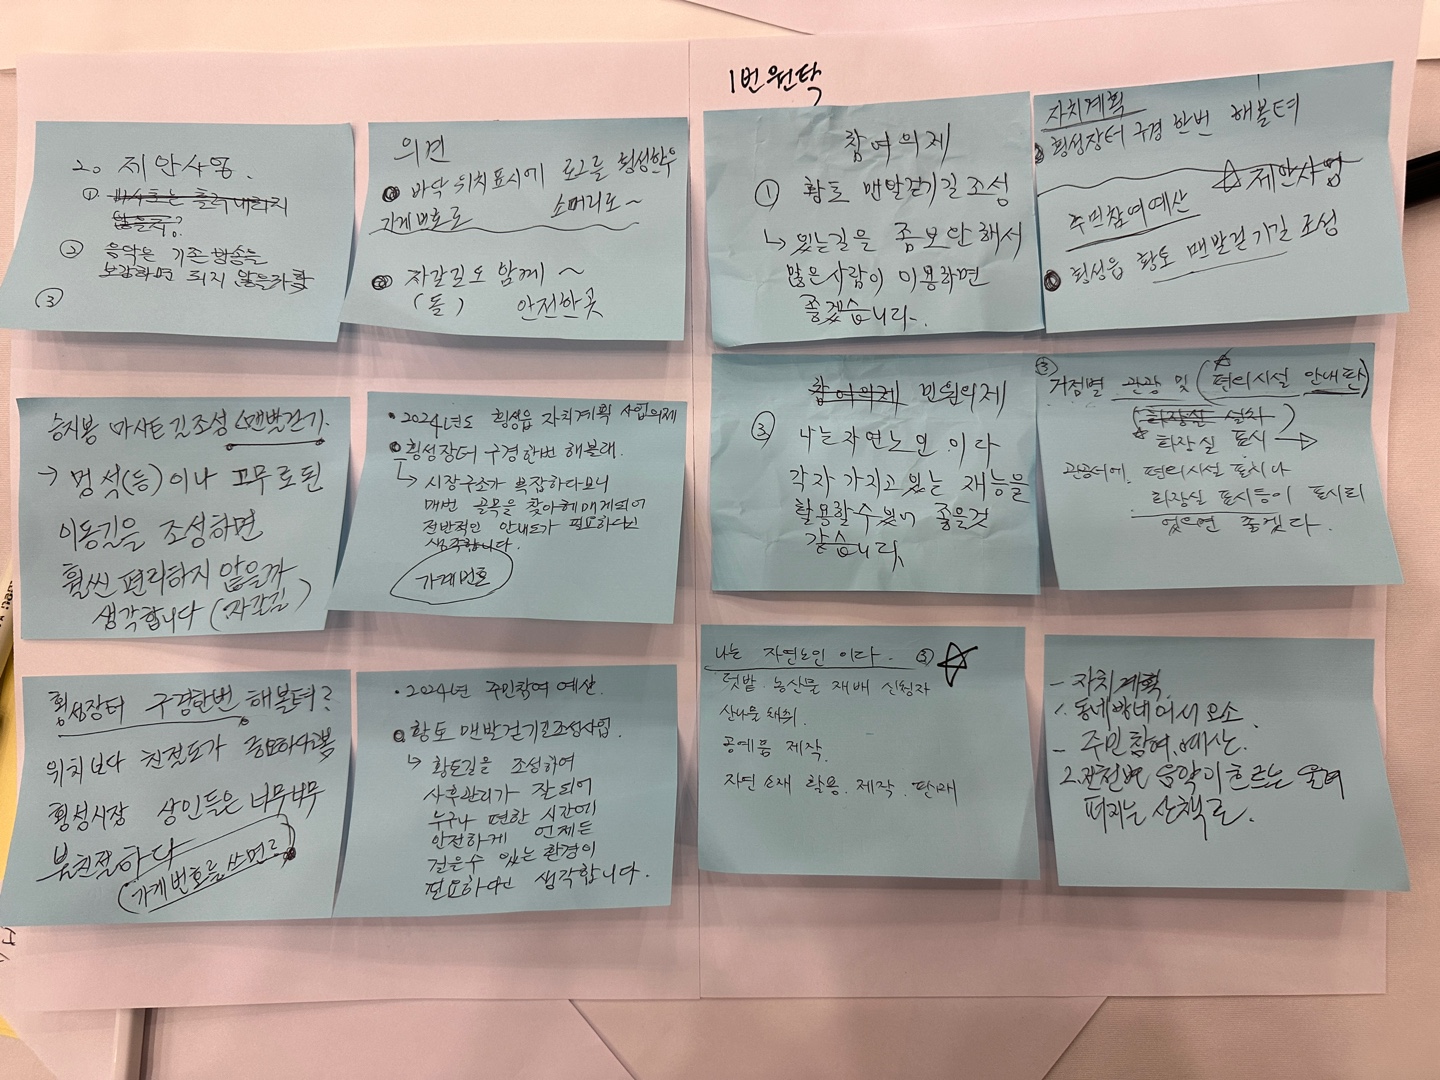 1번 원탁
20 제안사항.
① 마사토는 흘러내리지
않을지?
② 음악은 기존 방송을
보강하면 되지 않을까 함
③
의견
바닥 위치표시에 로고를 횡성한우
가게번호로 소머리로~
자갈길도 함께 ~
(돌) 안전한 곳
참여의제
① 황토 맨발걷기길 조성
↳ 있는길을 좀 보안해서
많은 사람이 이용하면
좋겠습니다.
자치계획
횡성장터 구경 한번 해볼텨
☆ 제안사업
주민참여예산
횡성읍 황토 맨발걷기길 조성
승지봉 마사토 길조성 맨발걷기.
→ 멍석(등)이나 고무로된
이동길을 조성하면
훨씬 편리하지 않을까
생각합니다 (자갈길)
• 2024년도 횡성읍 자치계획 사업의제
횡성장터 구경한번 해볼래.
↳ 시장구조가 복잡하다보니
매번 골목을 찾아헤매게되어
전반적인 안내도가 필요하다고
생각합니다.
가게번호
참여의제 민원의제
③ 나는 자연노인 이다
각자 가지고 있는 재능을
활용할수있어 좋을것
같습니다
③ 거점별 관광 및 (편의시설 안내판)
(화장실 설치)
☆ 화장실 표시 →
관공서에 편의시설 표지나
화장실 표시등이 표시되
었으면 좋겠다.
횡성장터 구경한번 해볼텨?
위치보다 친절도가 중요하다봄
횡성시장 상인들은 너무너무
불친절하다
(가게번호를 쓰면)
• 2024년 주민참여 예산.
황토 맨발걷기길조성사업.
↳ 황토길을 조성하여
사후관리가 잘되어
누구나 편한 시간에
안전하게 언제든
걸을수 있는 환경이
필요하다고 생각합니다.
나는 자연노인 이다. ③ ☆
텃밭. 농산물 재배 신청자
산나물 채취.
공예품 제작.
자연 소재 활용. 제작. 판매
- 자치계획
1. 동네방네 어서오소
- 주민참여.예산.
2. 관천변 음악이 흐르는 울려
퍼지는 산책로.